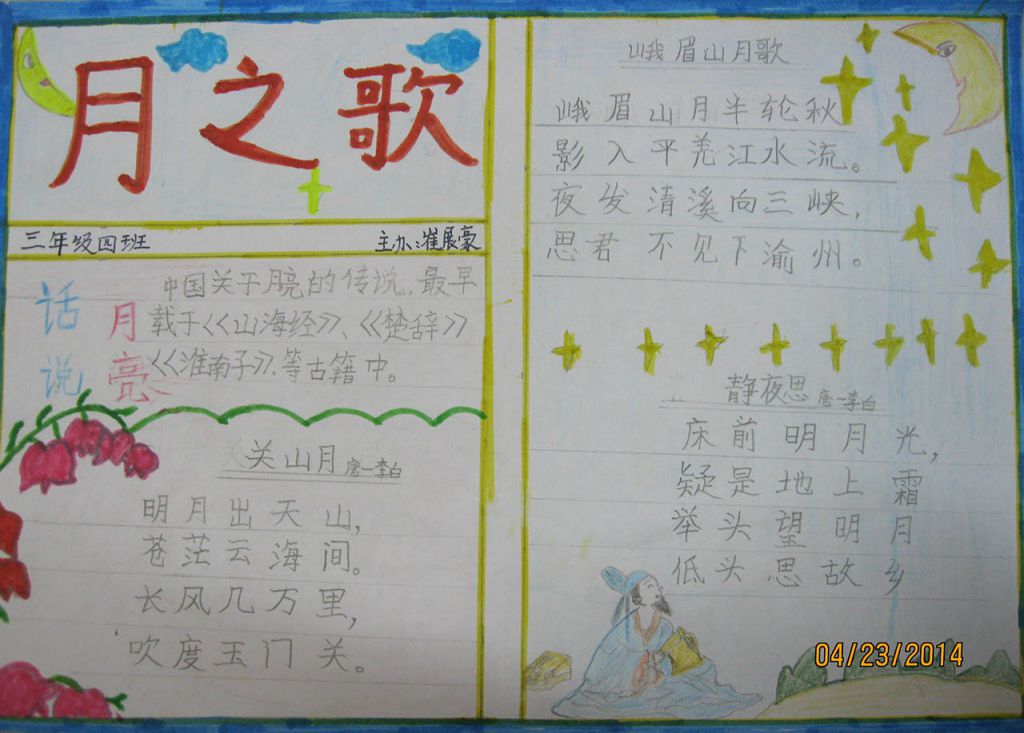 月之歌
三年级四班
主办:崔展豪
话说
月亮
中国关于月亮的传说,最早
载于《山海经》、《楚辞》
《淮南子》、等古籍中。
关山月 唐—李白
明月出天山,
苍茫云海间。
长风几万里,
吹度玉门关。
峨眉山月歌
峨眉山月半轮秋
影入平羌江水流。
夜发清溪向三峡,
思君不见下渝州。
静夜思 唐—李白
床前明月光,
疑是地上霜
举头望明月
低头思故乡
04/23/2014